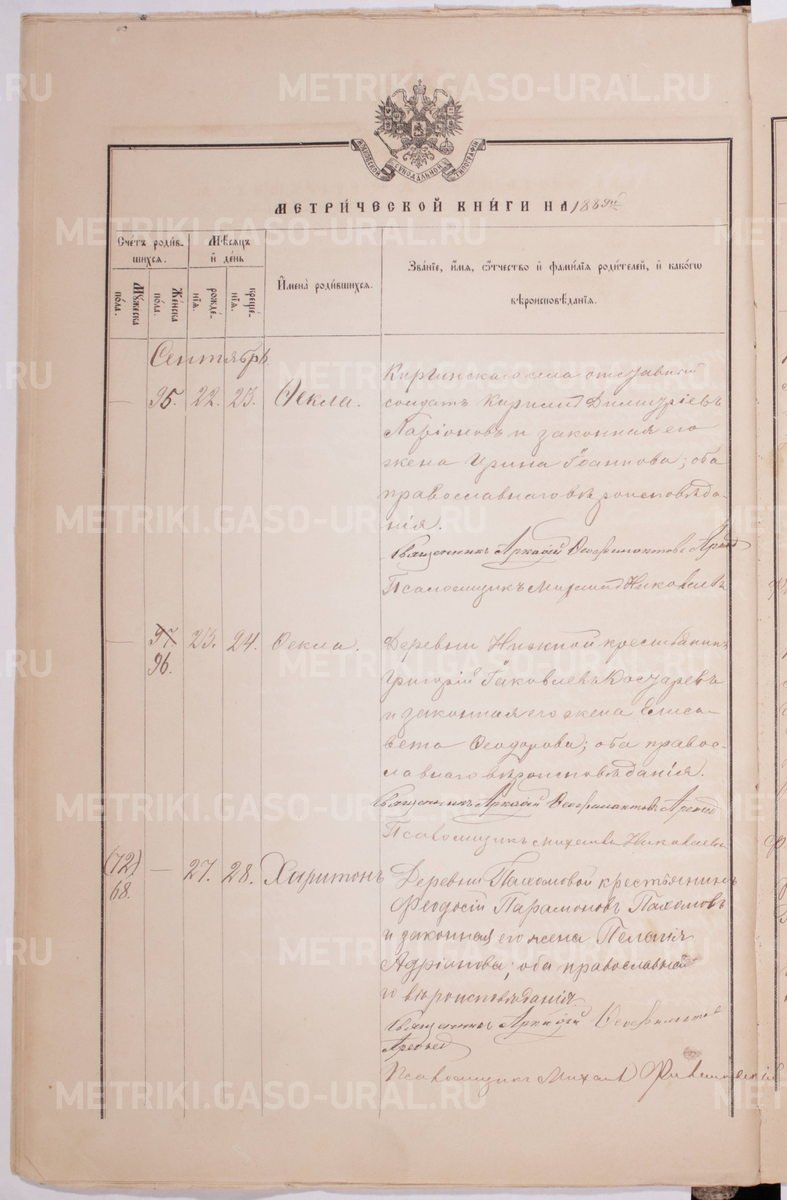 METRIKI.GASO-URAL.RU
МОСКОВСКОЙ СѴНОДАЛЬНОЙ ТИПОГРАФІИ
МЕТРИ́ЧЕСКОЙ КНИ́ГИ НА 188
Счетъ роди́в-шихся.
Мѣсяцъ и́ де́нь
И҆мена̀ роди́вшихся.
Зва́нїе, и҆́мя, ѻ҆́тчество и҆ фами́лїѧ роди́телей, и҆ како́гѡ вѣроисповѣ́данїѧ.
Мꙋ́жеска по́ла.
Же́нска по́ла.
рожде́-нїѧ.
креще́-нїѧ.
Сентябрь
— 95. 22. 23. Ѳекла.
Киргинскаго села отставной
солдатъ Кириллъ Димитріевъ
Ларіоновъ и законная его
жена Ирина Іоаннова; оба
православнаго вѣроисповѣда-
нія.
Священникъ Аркадій
Псаломщикъ Михаилъ
— 97 23. 24. Ѳекла.
96.
Деревни Нижной крестьянинъ
Григорій Іаковлевъ Косаревъ
и законная его жена Елиса-
вета Ѳеодорова; оба правос-
лавнаго вѣроисповѣданія.
Священникъ Аркадій
Псаломщикъ Михаилъ
(72) — 27. 28. Харитонъ
68.
Деревни Пахомовой крестьянинъ
Ѳеодосій Парамоновъ Пахомовъ
и законная его жена Пелагія
Адріанова; оба православна-
го вѣроисповѣданія
Священникъ Аркадій
Псаломщикъ Михаилъ